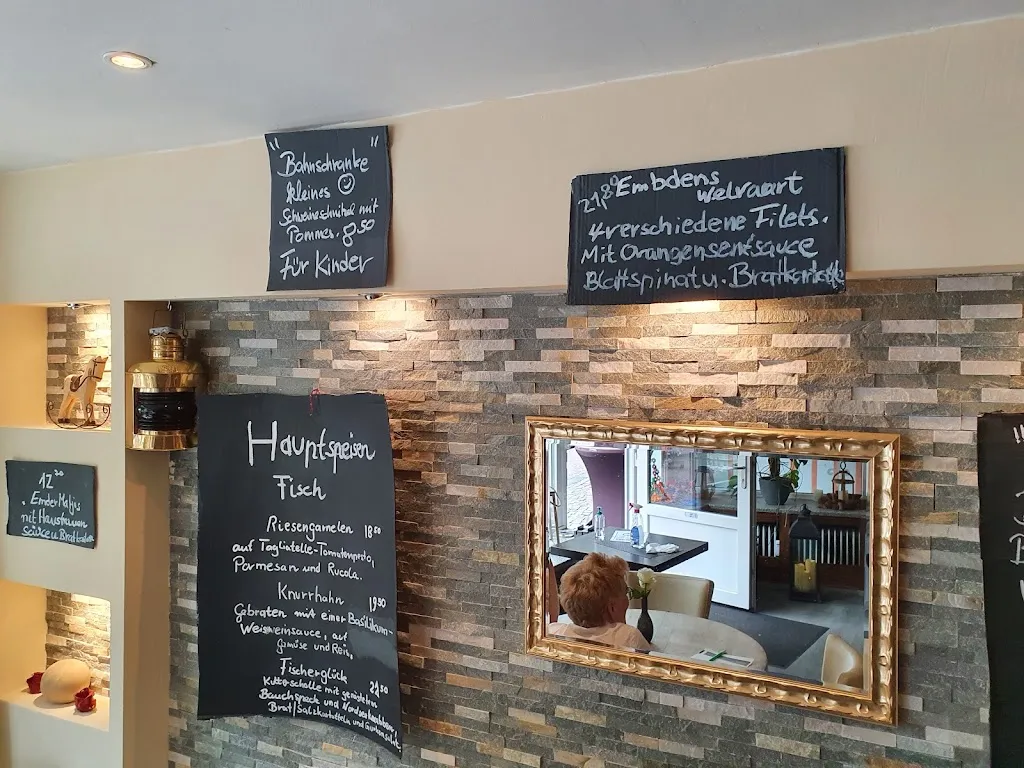 "Bahnschranke"
kleines ☺
Schweineschnitzel mit
Pommes. 8,50
Für Kinder
21,80 Embdens
welvaart
4 verschiedene Filets.
Mit Orangensenfsauce
Blattspinat u. Bratkartoffel
Hauptspeisen
Fisch
Riesengarnelen 18,50
auf Tagliatelle-Tomatenpesto,
Parmesan und Rucola.
Knurrhahn 19,50
Gebraten mit einer Basilikum-
Weissweinsauce, auf
Gemüse und Reis,
Fischerglück
Kutterscholle mit geröstetem 24,50
Bauchspeck und Nordseekrabben,
Brat/Salzkartoffeln und Gurkensalat.
12,20
Emder Matjes
mit Hausfrauen
sauce u Bratkartoffeln
!!